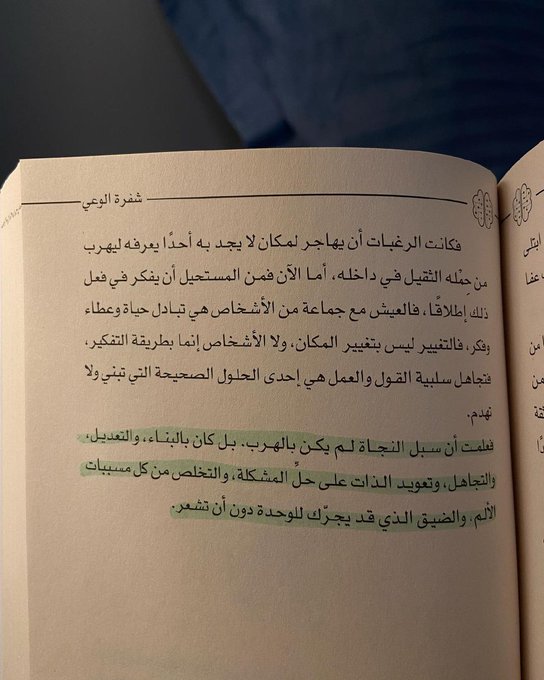 شفرة الوعي
فكانت الرغبات أن يهاجر لمكان لا يجد به أحدًا يعرفه ليهرب
من حِمْله الثقيل في داخله، أما الآن فمن المستحيل أن يفكر في فعل
ذلك إطلاقًا، فالعيش مع جماعة من الأشخاص هي تبادل حياة وعطاء
وفكر، فالتغيير ليس بتغيير المكان، ولا الأشخاص إنما بطريقة التفكير،
فتجاهل سلبية القول والعمل هي إحدى الحلول الصحيحة التي تبني ولا
تهدم.
فعلمت أن سبل النجاة لم يكن بالهرب. بل كان بالبناء، والتعديل،
والتجاهل، وتعويد الذات على حلِّ المشكلة، والتخلص من كل مسببات
الألم. والضيق الذي قد يجرّك للوحدة دون أن تشعر.
ابتلى